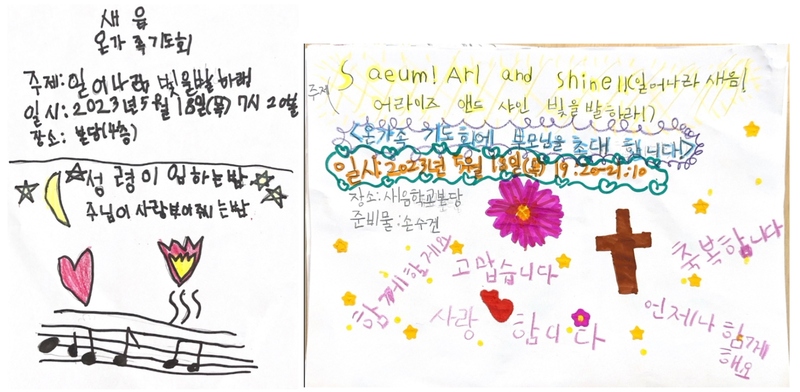 새음
온가족기도회
주제: 일어나라 빛을발하라
일시: 2023년5월18일(목) 7시 20분
장소: 본당(4층)
성령이 임하는밤
주님이 사랑부어주시는밤
주제
Saeum! Ari and shine!!(일어나라 새음!
어라이즈 앤드 샤인 빛을 발하라!)
<온가족 기도회에 부모님을 초대 합니다>
일시: 2023년 5월 18일(목) 19:20~21:10
장소: 새음학교본당
준비물: 손수건
함께할게요
고맙습니다
축복합니다
사랑 합니다
언제나 함께
해요